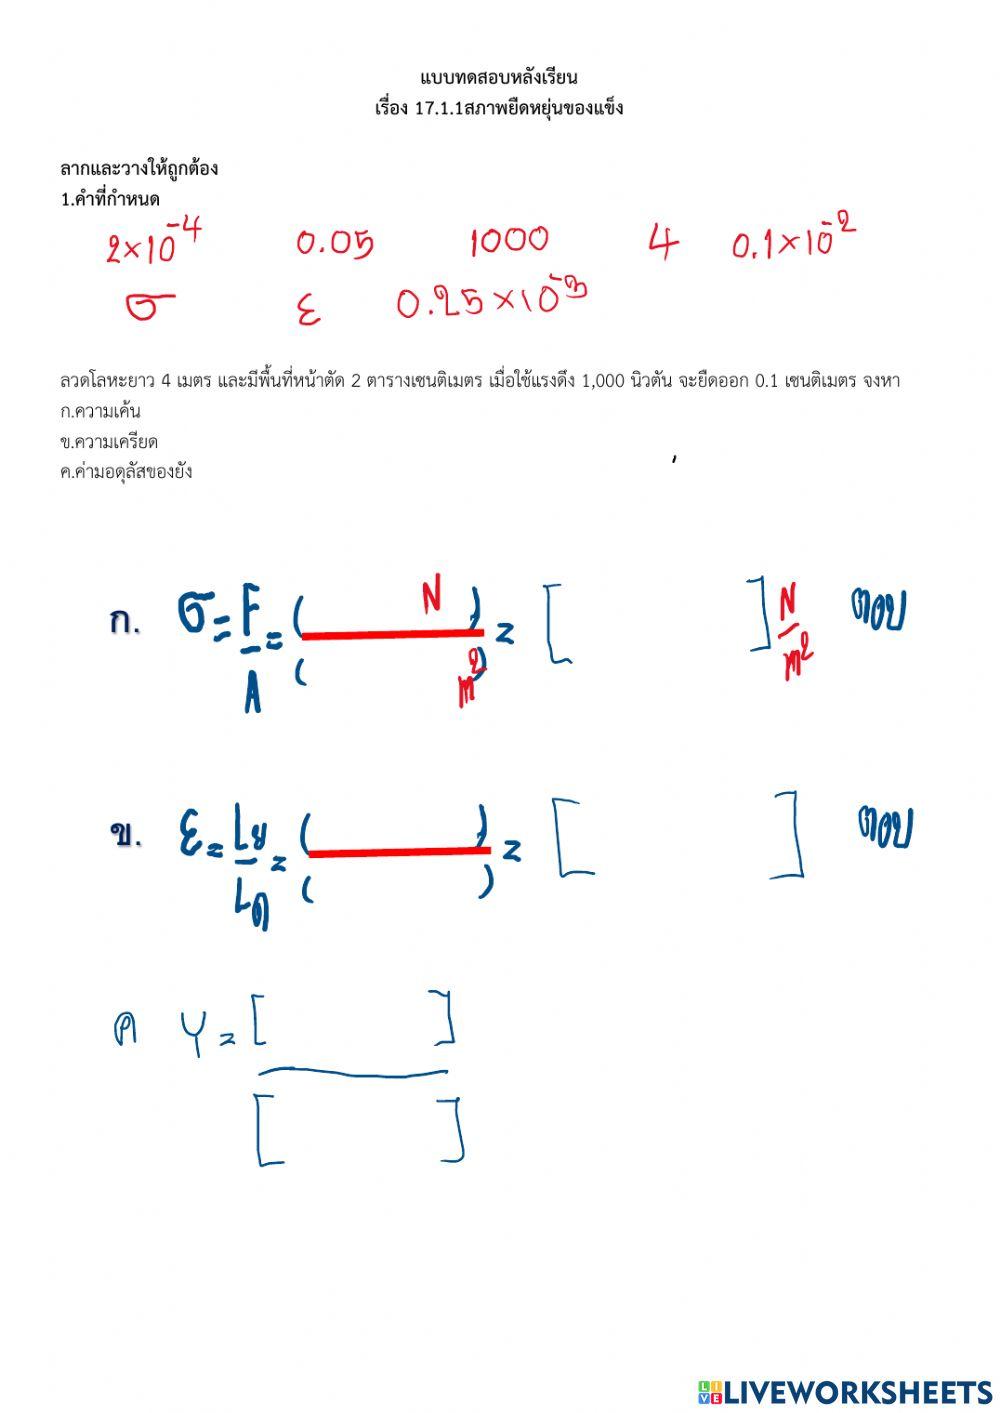 แบบทดสอบหลังเรียน
เรื่อง 17.1.1สภาพยืดหยุ่นของแข็ง
ลากและวางให้ถูกต้อง
1.คำที่กำหนด
2×10⁻⁴ 0.05 1000 4 0.1×10⁻²
σ ε 0.25×10⁻³
ลวดโลหะยาว 4 เมตร และมีพื้นที่หน้าตัด 2 ตารางเซนติเมตร เมื่อใช้แรงดึง 1,000 นิวตัน จะยืดออก 0.1 เซนติเมตร จงหา
ก.ความเค้น
ข.ความเครียด
ค.ค่ามอดุลัสของยัง
ก. σ = F/A = ( N )/( m² ) = [ ] N/m² ตอบ
ข. ε = = ( )/( ) = [ ] ตอบ
ค Y = [ ]/[ ]
LIVEWORKSHEETS